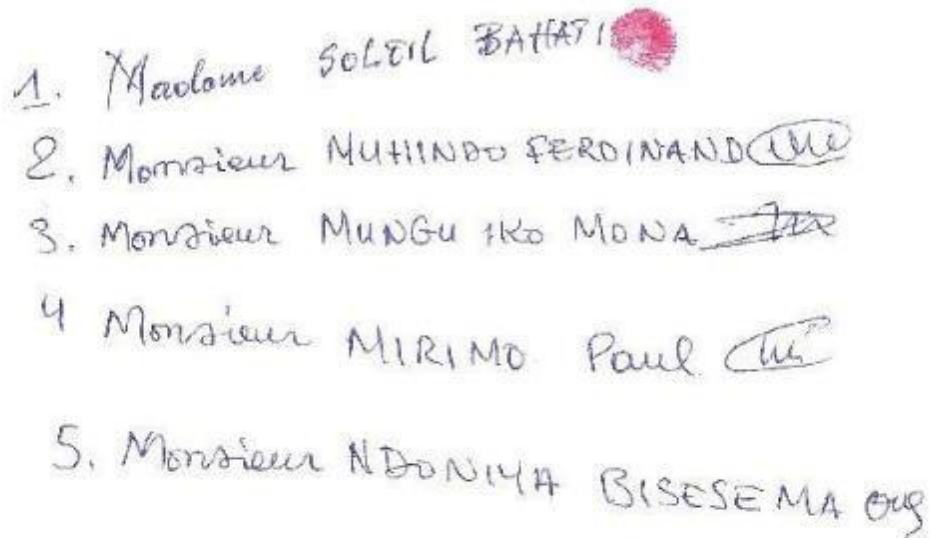 1. Madame SOLEIL BAHATI
2. Monsieur MUHINDO FERDINAND
3. Monsieur MUNGU IKO MONA
4 Monsieur MIRIMO Paul
5. Monsieur NDONIYA BISESEMA